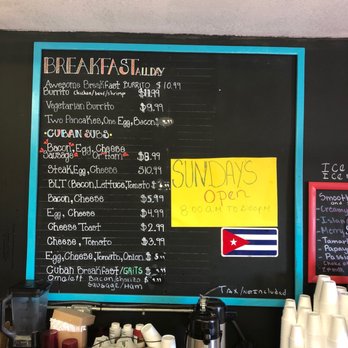 BREAKFAST ALL DAY
Awesome Breakfast Burrito $10.99
Burrito Chicken/beef/shrimp $11.99
Vegetarian Burrito $9.99
Two Pancakes, One Egg, Bacon $ .99
CUBAN SUBS
Bacon, Egg, Cheese
Sausage Or Ham $8.99
Steak, Egg, Cheese $10.99
BLT (Bacon, Lettuce, Tomato $ .99
Bacon, Cheese $5.99
Egg, Cheese $4.99
Cheese Toast $2.99
Cheese, Tomato $3.99
Egg, Cheese, Tomato, Onion $ .99
Cuban Breakfast/GRITS $ .99
Omelett Bacon
Sausage/Ham
TAX/not included
SUNDAYS
Open
8:00 AM TO
ICE
ICE
Smooth
and
Creamy
Island
Merry
Tamar
Papay
Passio